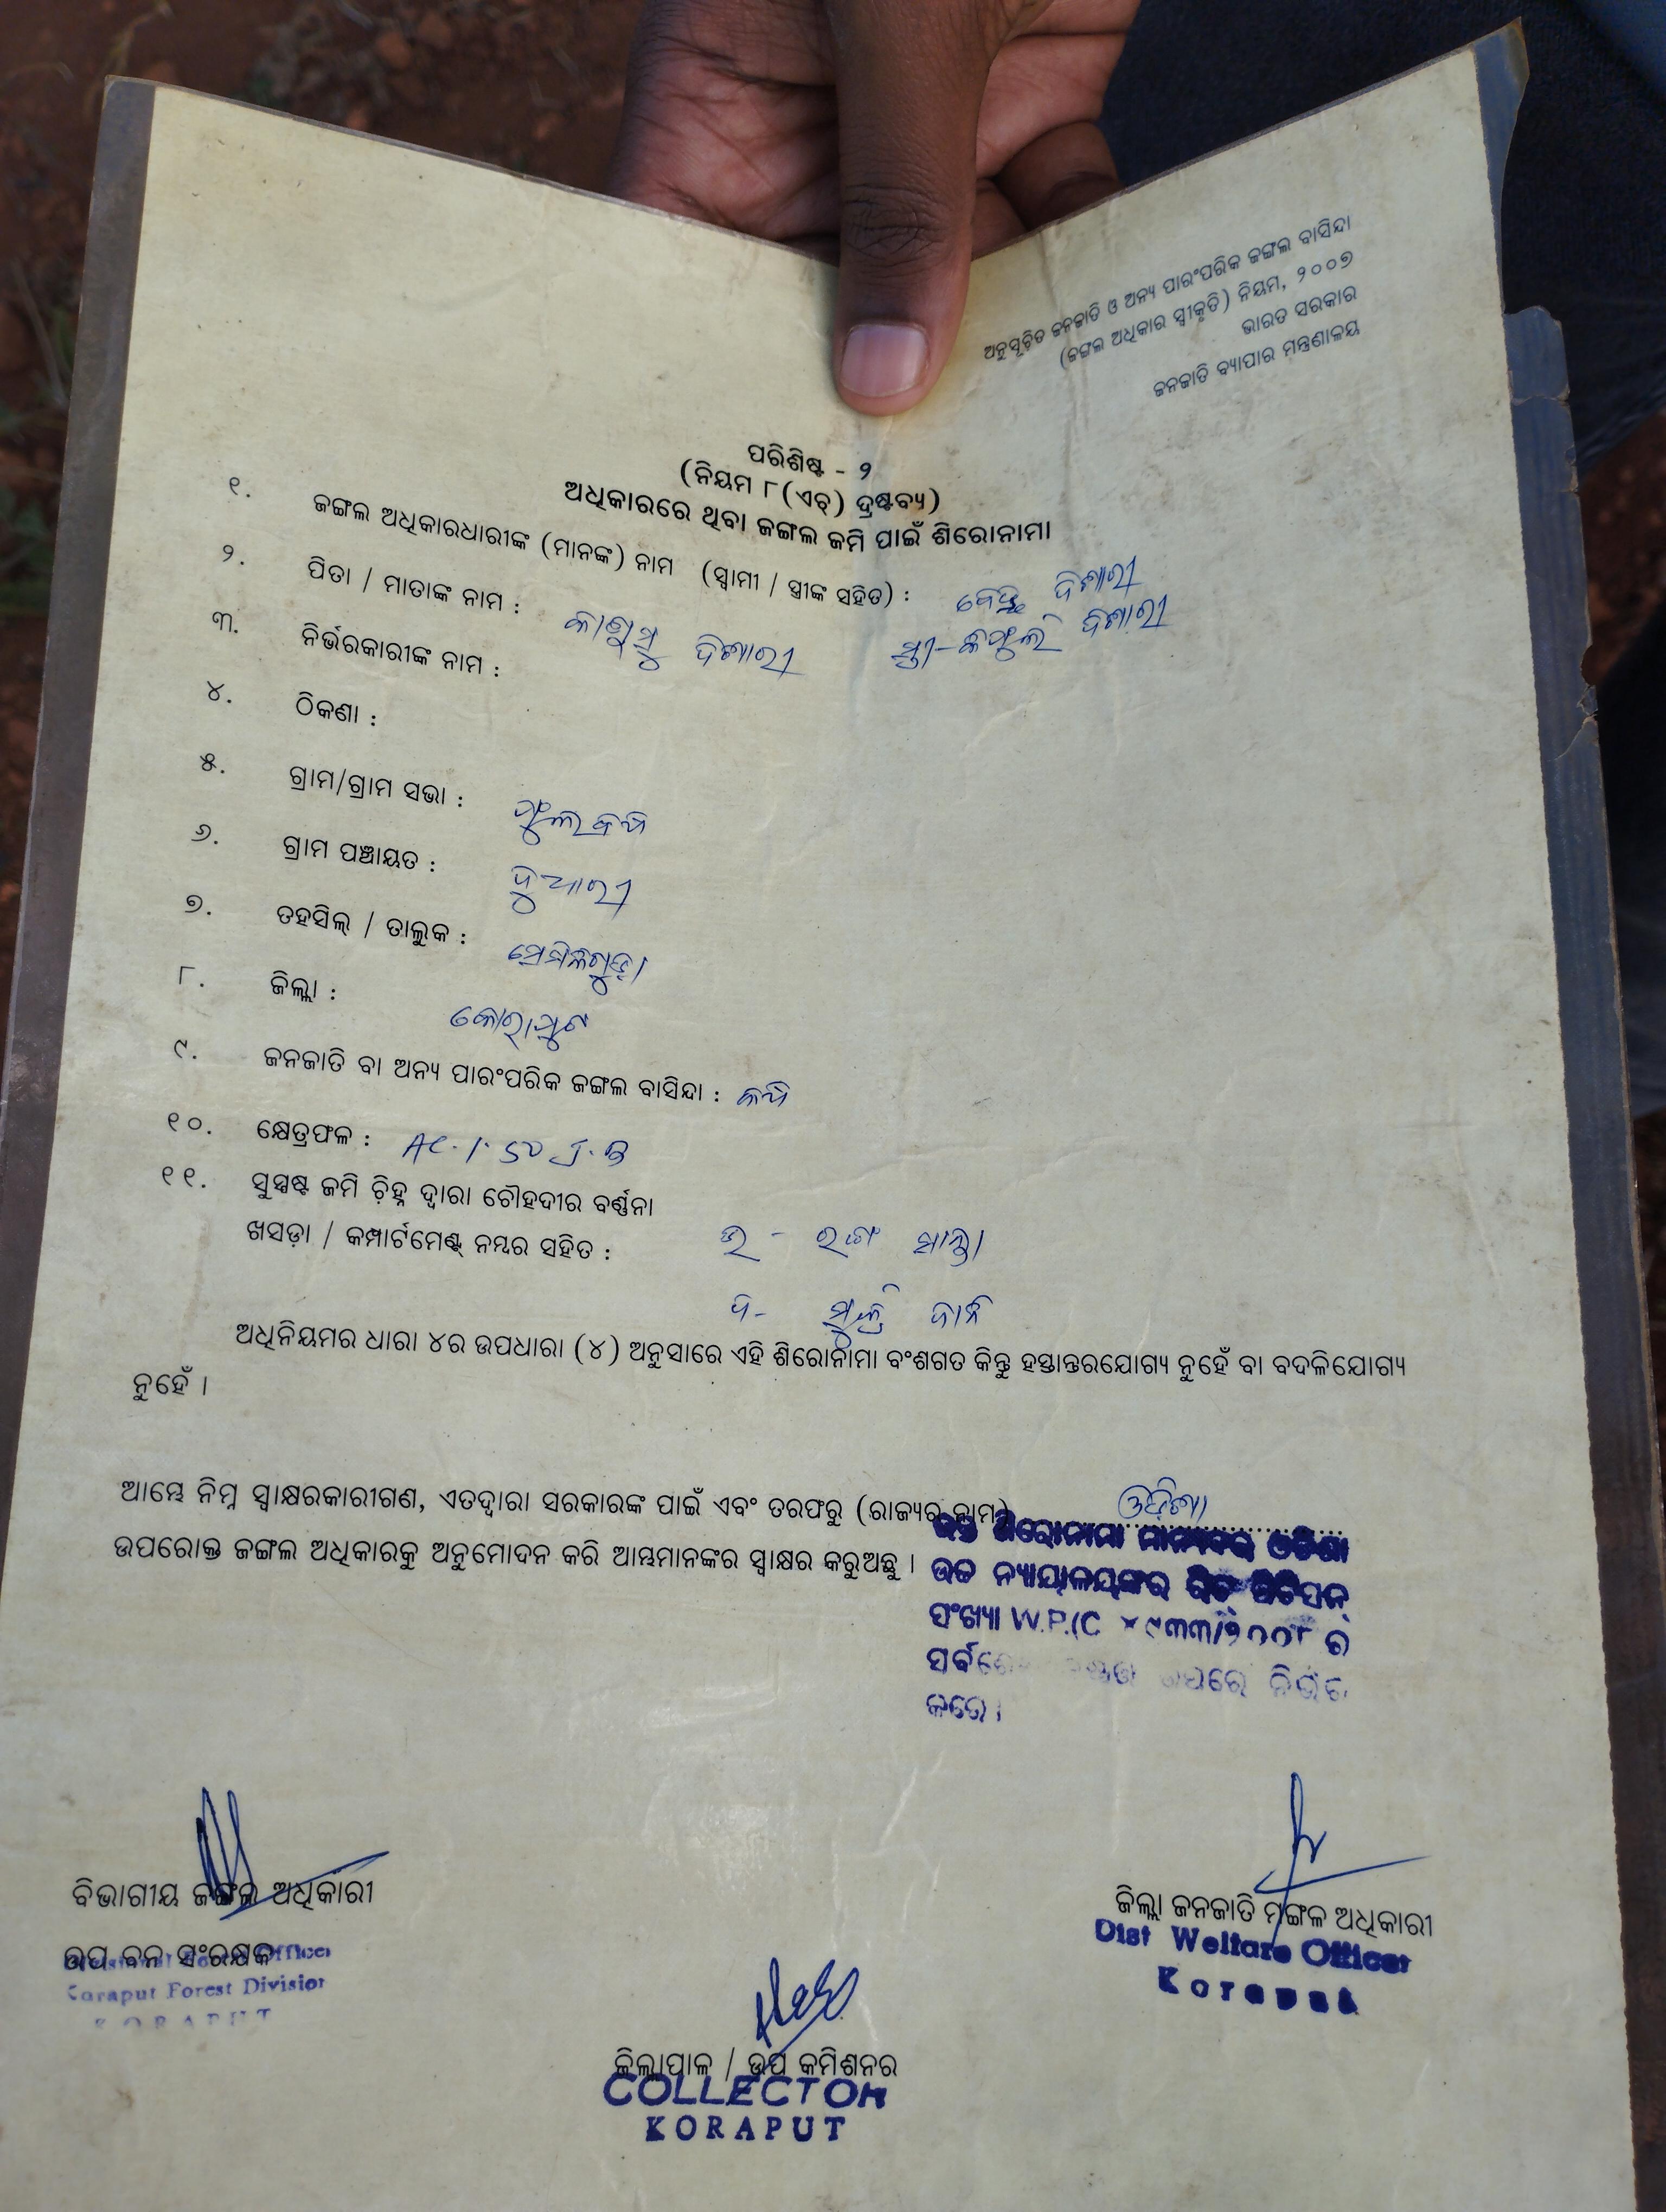 ଅନୁସୂଚିତ ଜନଜାତି ଓ ଅନ୍ୟ ପାରଂପରିକ ଜଙ୍ଗଲ ବାସିନ୍ଦା
(ଜଙ୍ଗଲ ଅଧିକାର ସ୍ୱୀକୃତି) ନିୟମ, ୨୦୦୭
ଭାରତ ସରକାର
ଜନଜାତି ବ୍ୟାପାର ମନ୍ତ୍ରଣାଳୟ
ପରିଶିଷ୍ଟ - ୨
(ନିୟମ ୮(ଏଚ୍) ଦ୍ରଷ୍ଟବ୍ୟ)
ଅଧିକାରରେ ଥିବା ଜଙ୍ଗଲ ଜମି ପାଇଁ ଶିରୋନାମା
୧. ଜଙ୍ଗଲ ଅଧିକାରଧାରୀଙ୍କ (ମାନଙ୍କ) ନାମ (ସ୍ୱାମୀ / ସ୍ତ୍ରୀଙ୍କ ସହିତ) : ଦିଶାରୀ
ସ୍ତ୍ରୀ- ଦିଶାରୀ
୨. ପିତା / ମାତାଙ୍କ ନାମ : ଦିଶାରୀ
୩. ନିର୍ଭରକାରୀଙ୍କ ନାମ :
୪. ଠିକଣା :
୫. ଗ୍ରାମ/ଗ୍ରାମ ସଭା :
୬. ଗ୍ରାମ ପଞ୍ଚାୟତ : ଦୁଆରୀ
୭. ତହସିଲ୍ / ତାଲୁକ : ସେମିଳିଗୁଡ଼ା
୮. ଜିଲ୍ଲା : କୋରାପୁଟ
୯. ଜନଜାତି ବା ଅନ୍ୟ ପାରଂପରିକ ଜଙ୍ଗଲ ବାସିନ୍ଦା :
୧୦. କ୍ଷେତ୍ରଫଳ : AC. 1. 50
୧୧. ସୁସ୍ପଷ୍ଟ ଜମି ଚିହ୍ନ ଦ୍ୱାରା ଚୌହଦୀର ବର୍ଣ୍ଣନା
ଖସଡ଼ା / କମ୍ପାର୍ଟମେଣ୍ଟ୍ ନମ୍ବର ସହିତ : ଉ -
ଦ- ଜାନି
ଅଧିନିୟମର ଧାରା ୪ର ଉପଧାରା (୪) ଅନୁସାରେ ଏହି ଶିରୋନାମା ବଂଶଗତ କିନ୍ତୁ ହସ୍ତାନ୍ତରଯୋଗ୍ୟ ନୁହେଁ ବା ବଦଳିଯୋଗ୍ୟ
ନୁହେଁ ।
ଆମ୍ଭେ ନିମ୍ନ ସ୍ୱାକ୍ଷରକାରୀଗଣ, ଏତଦ୍ୱାରା ସରକାରଙ୍କ ପାଇଁ ଏବଂ ତରଫରୁ (ରାଜ୍ୟର ନାମ) ଓଡ଼ିଶା
ଉପରୋକ୍ତ ଜଙ୍ଗଲ ଅଧିକାରକୁ ଅନୁମୋଦନ କରି ଆମ୍ଭମାନଙ୍କର ସ୍ୱାକ୍ଷର କରୁଅଛୁ ।
ଶିରୋନାମା ଓଡିଶା
ଉଚ୍ଚ ନ୍ୟାୟାଳୟଙ୍କର ରିଟ୍ ପିଟିସନ୍
ସଂଖ୍ୟା W.P.(C ୪୯୩୩/୨୦୦୮ ର
ନିର୍ଭର
କରେ ।
ବିଭାଗୀୟ ଜଙ୍ଗଲ ଅଧିକାରୀ
ଉପ ବନ ସଂରକ୍ଷକ
Officer
Koraput Forest Division
KORAPUT
ଜିଲ୍ଲା ଜନଜାତି ମଙ୍ଗଳ ଅଧିକାରୀ
Dist Welfare Officer
Koraput
ଜିଲ୍ଲାପାଳ / ଉପ କମିଶନର
COLLECTOR
KORAPUT